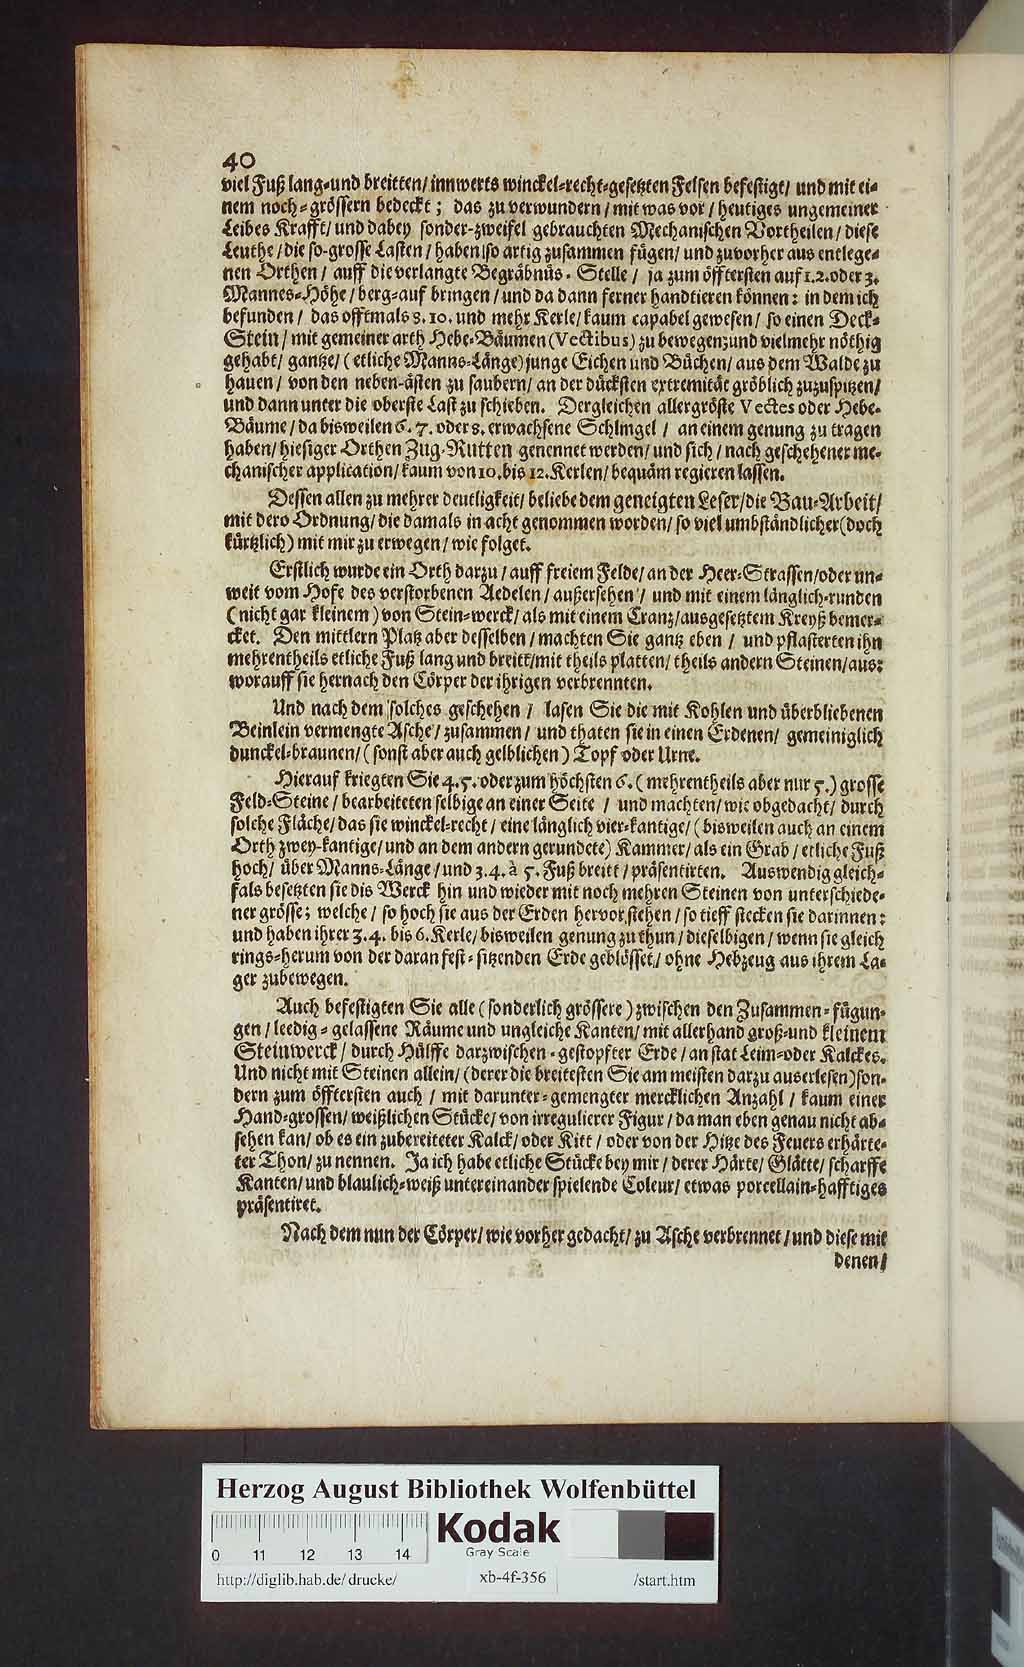 40
viel Fuß lang-und breitten/ innwerts winckel-recht-gesetzten Felsen befestigt/ und mit ei-
nem noch-grössern bedeckt; das zu verwundern/ mit was vor/ heutiges ungemeiner
Leibes Krafft/ und dabey sonder-zweifel gebrauchten Mechanischen Vortheilen/ diese
Leuthe/ die so-grosse Lasten/ haben so artig zusammen fügen/ und zuvorher aus entlege-
nen Orthen/ auff die verlangte Begräbnüs-Stelle/ ja zum öfftersten auf 1. 2. oder 3.
Mannes-Höhe/ berg-auf bringen/ und da dann ferner handtieren können: in dem ich
befunden/ das offtmals 8. 10. und mehr Kerle/ kaum capabel gewesen/ so einen Deck-
Stein/ mit gemeiner arth Hebe-Bäumen (Vectibus) zu bewegen; und vielmehr nöthig
gehabt/ gantze/ (etliche Manns-Länge) junge Eichen und Büchen/ aus dem Walde zu
hauen/ von den neben-ästen zu saubern/ an der dücksten extremität gröblich zuzuspitzen/
und dann unter die oberste Last zu schieben. Dergleichen allergröste Vectes oder Hebe-
Bäume/ da bisweilen 6. 7. oder 8. erwachsene Schlingel/ an einem genung zu tragen
haben/ hiesiger Orthen Zug-Rutten genennet werden/ und sich/ nach geschehener me-
chanischer application/ kaum von 10. bis 12. Kerlen/ bequäm regieren lassen.
Dessen allen zu mehrer deutligkeit/ beliebe dem geneigten Leser/ die Bau-Arbeit/
mit dero Ordnung/ die damals in acht genommen worden/ so viel umbständlicher (doch
kürtzlich) mit mir zu erwegen/ wie folget.
Erstlich wurde ein Orth darzu/ auff freiem Felde/ an der Heer-Strassen/ oder un-
weit vom Hofe des verstorbenen Aedelen/ außersehen/ und mit einem länglich-runden
(nicht gar kleinem) von Stein-werck/ als mit einem Crantz/ ausgesetztem Kreyß bemer-
cket. Den mittlern Platz aber desselben/ machten Sie gantz eben/ und pflasterten ihn
mehrentheils etliche Fuß lang und breitt/ mit theils platten/ theils andern Steinen/ aus:
worauff sie hernach den Cörper der ihrigen verbrennten.
Und nach dem solches geschehen/ lasen Sie die mit Kohlen und überbliebenen
Beinlein vermengte Asche/ zusammen/ und thaten sie in einen Erdenen/ gemeiniglich
dunckel-braunen/ (sonst aber auch gelblichen) Topf oder Urne.
Hierauf kriegten Sie 4. 5. oder zum höchsten 6. (mehrentheils aber nur 5.) grosse
Feld-Steine/ bearbeiteten selbige an einer Seite/ und machten/ wie obgedacht/ durch
solche Fläche/ das sie winckel-recht/ eine länglich vier-kantige/ (bisweilen auch an einem
Orth zwey-kantige/ und an dem andern gerundete) Kammer/ als ein Grab/ etliche Fuß
hoch/ über Manns-Länge/ und 3. 4. à 5. Fuß breitt/ präsentirten. Auswendig gleich-
fals besetzten sie dis Werck hin und wieder mit noch mehren Steinen von unterschiede-
ner grösse; welche/ so hoch sie aus der Erden hervor stehen/ so tieff stecken sie darinnen:
und haben ihrer 3. 4. bis 6. Kerle/ bisweilen genung zu thun/ dieselbigen/ wenn sie gleich
rings-herum von der daran fest-sitzenden Erde geblösset/ ohne Hebzeug aus ihrem La-
ger zubewegen.
Auch befestigten Sie alle (sonderlich grössere) zwischen den Zusammen-fügun-
gen/ leedig-gelassene Räume und ungleiche Kanten/ mit allerhand groß-und kleinem
Steinwerck/ durch Hülffe darzwischen-gestopfter Erde/ an stat Leim-oder Kalckes.
Und nicht mit Steinen allein/ (derer die breitesten Sie am meisten darzu auserlesen) son-
dern zum öfftersten auch/ mit darunter-gemengter mercklichen Anzahl/ kaum einer
Hand-grossen/ weißlichen Stücke/ von irregulierer Figur/ da man eben genau nicht ab-
sehen kan/ ob es ein zubereiteter Kalck/ oder Kitt/ oder von der Hitze des Feuers erhärte-
ter Thon/ zu nennen. Ja ich habe etliche Stücke bey mir/ derer Härte/ Glätte/ scharffe
Kanten/ und blaulich-weiß untereinander spielende Coleur/ etwas porcellain-hafftiges
präsentiret.
Nach dem nun der Cörper/ wie vorher gedacht/ zu Asche verbrennet/ und diese mit
denen/
Herzog August Bibliothek Wolfenbüttel
0 11 12 13 14
Kodak
Gray Scale
http://diglib.hab.de/drucke/
xb-4f-356
/start.htm